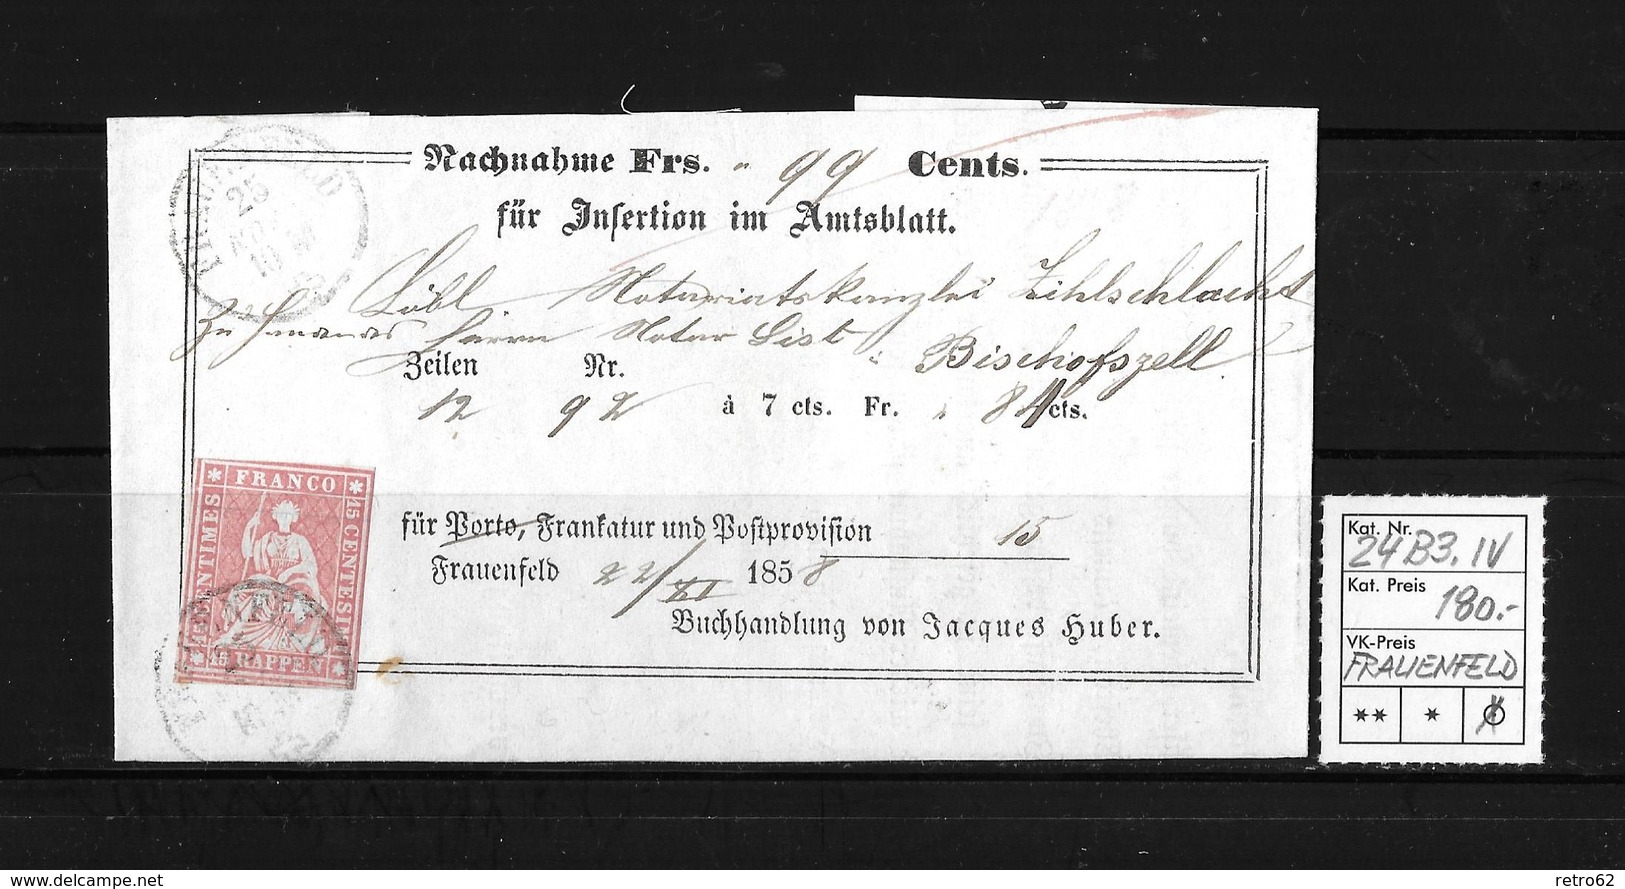 Nachnahme Frs. " 99 Cents.
für Insertion im Amtsblatt.
Löbl Notariatskanzlei Zihlschlacht
zu Handen Herrn Notar List in Bischofszell
Zeilen Nr.
12 92 à 7 cts. Fr. " 84 cts.
für Porto, Frankatur und Postprovision 15
Frauenfeld 22/XI 1858
Buchhandlung von Jacques Huber.
FRAUENFELD
25
NOV
10
FRANCO
15 CENTESIMI
CENTIMES
15 RAPPEN
Kat. Nr.
24B3.IV
Kat. Preis
180.-
VK-Preis
FRAUENFELD
delcampe.net
retro62